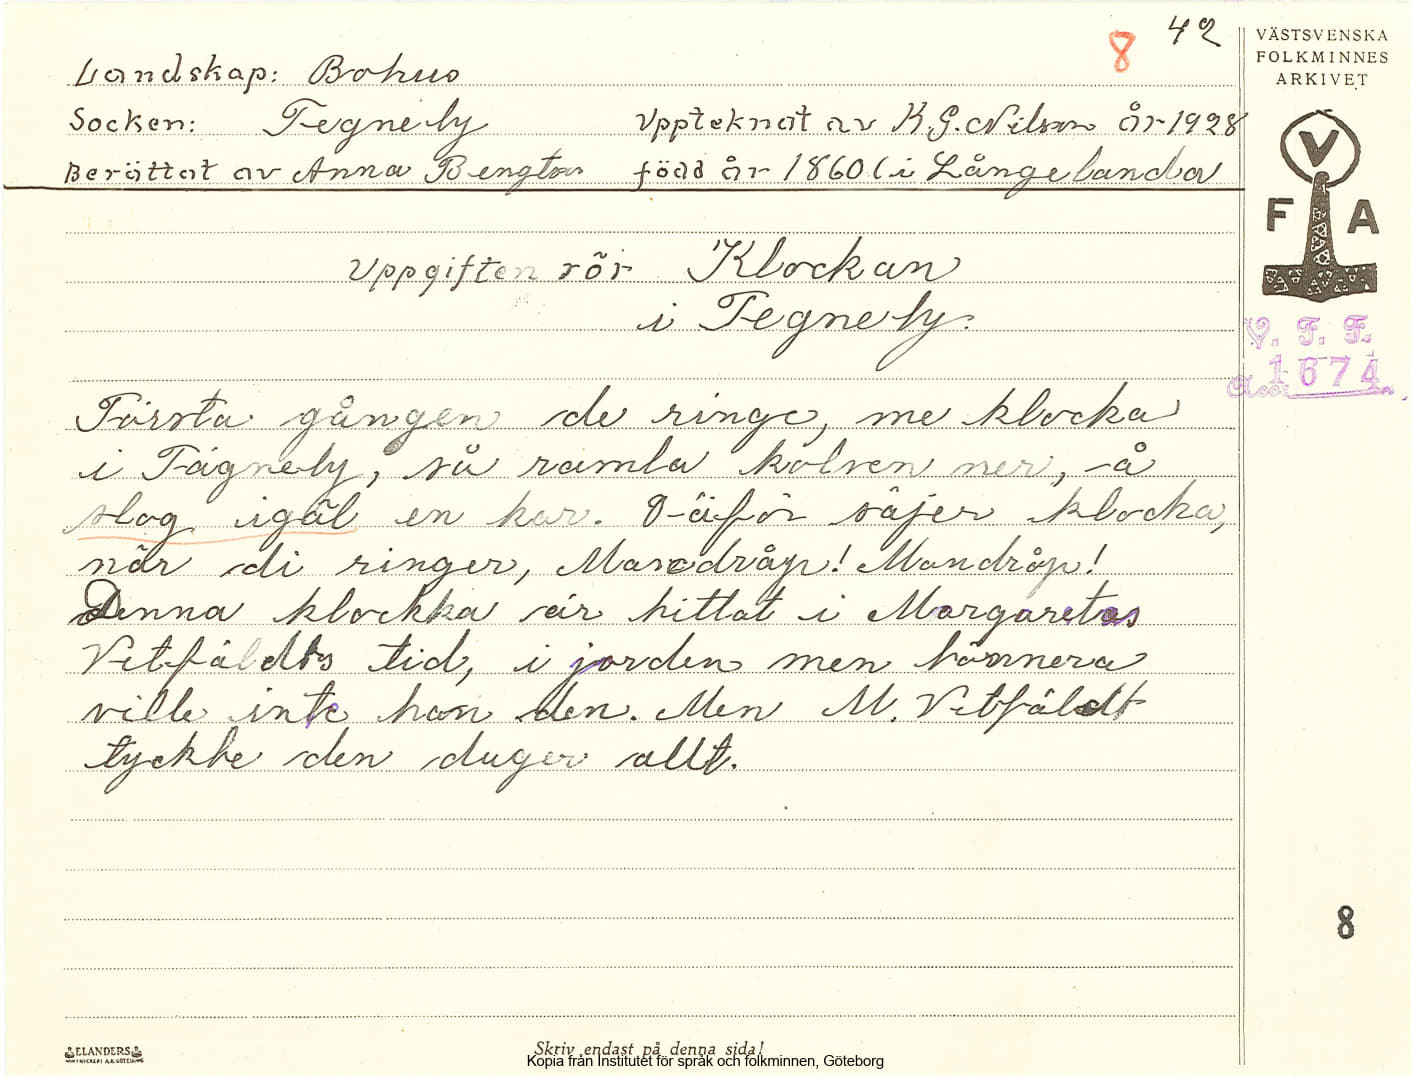 42
8
VÄSTSVENSKA
FOLKMINNES
ARKIVET
Landskap: Bohus
Socken: Tegneby Uppteknat av K.G. Nilson år 1928
Berättat av Anna Bengtson född år 1860 (i Långelanda
V
F A
Uppgiften rör Klockan
i Tegneby.
V. F. F.
Acc. 1674
Första gången de ringe, me klocka
i Tägneby, så ramla kolven ner, å
slog igäl en kar. Däför säjer klocka,
när di ringer, Mandråp! Mandråp!
Denna klocka är hittat i Margaretas
Vetfäldts tid, i jorden men bönnera
ville inte han den. Men M. Vetfäldt
tyckte den duger allt.
8
ELANDERS
Skriv endast på denna sida!
Kopia från Institutet för språk och folkminnen, Göteborg